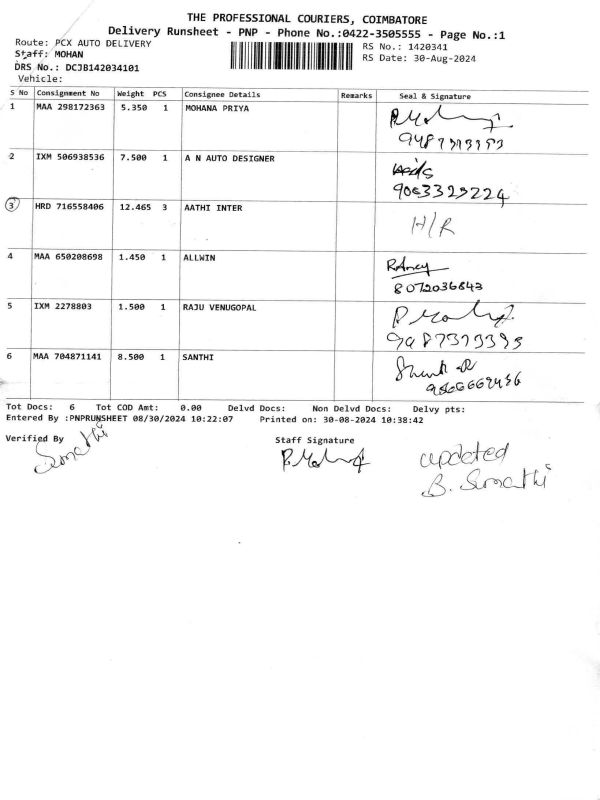 THE PROFESSIONAL COURIERS, COIMBATORE
Delivery Runsheet - PNP - Phone No.:0422-3505555 - Page No.:1
Route: PCX AUTO DELIVERY
RS No.: 1420341
Staff: MOHAN
RS Date: 30-Aug-2024
DRS No.: DCJB142034101
Vehicle:
S No Consignment No Weight PCS Consignee Details Remarks Seal & Signature
1 MAA 298172363 5.350 1 MOHANA PRIYA
2 IXM 506938536 7.500 1 A N AUTO DESIGNER
3 HRD 716558406 12.465 3 AATHI INTER H/R
4 MAA 650208698 1.450 1 ALLWIN
8072036843
5 IXM 2278803 1.500 1 RAJU VENUGOPAL
6 MAA 704871141 8.500 1 SANTHI
Tot Docs: 6 Tot COD Amt: 0.00 Delvd Docs: Non Delvd Docs: Delvy pts:
Entered By :PNPRUNSHEET 08/30/2024 10:22:07 Printed on: 30-08-2024 10:38:42
Verified By Staff Signature
Sumathi
updated
B. Sumathi